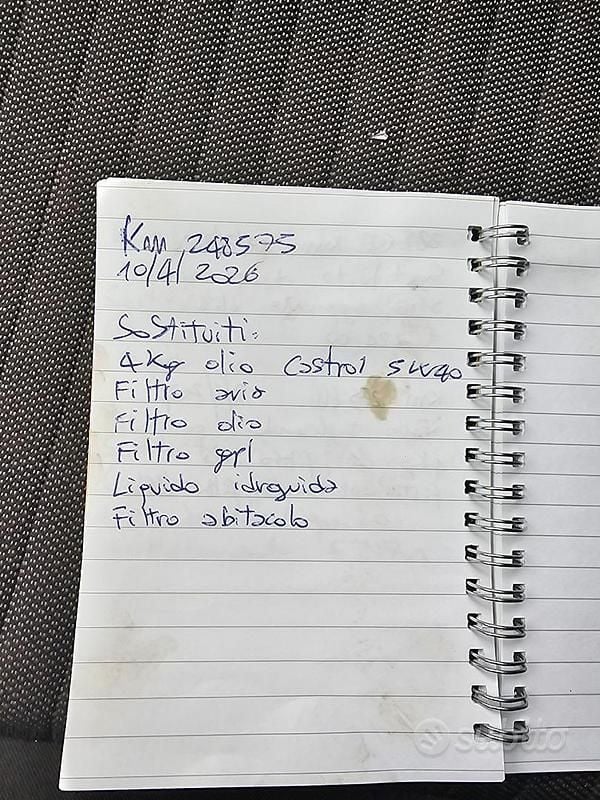 Km 248575
10/4/2026
Sostituiti:
4kg olio Castrol 5W40
Filtro aria
Filtro olio
Filtro gpl
Liquido idroguida
Filtro abitacolo
subito